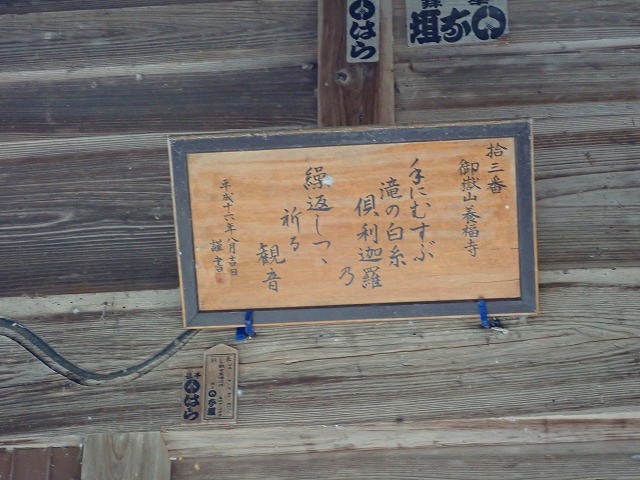 拾三番
御嶽山養福寺
手にむすぶ
滝の白糸
倶利迦羅乃
繰返しつゝ
祈る
観音
平成十六年八月吉日
謹書
はら
はら